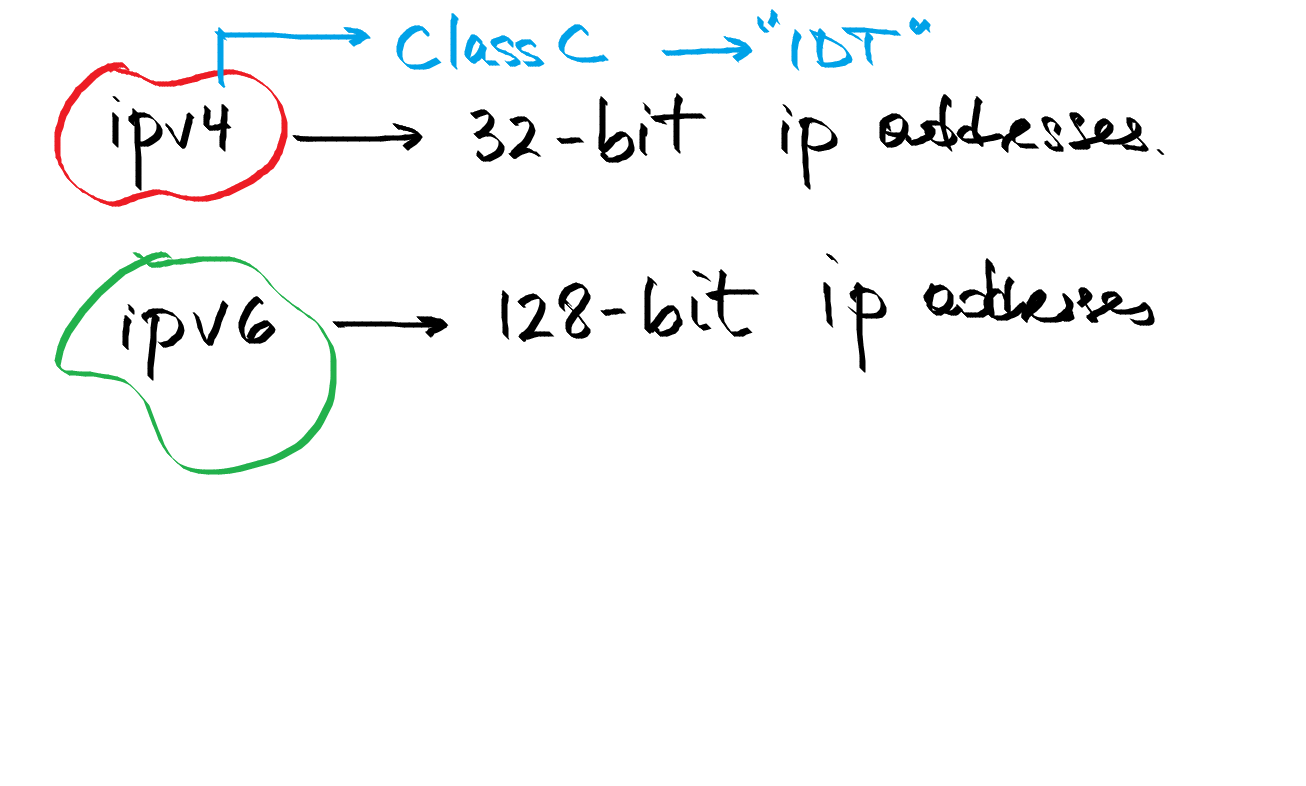 Class C → "IDT"
ipv4 → 32-bit ip addresses.
ipv6 → 128-bit ip addresses